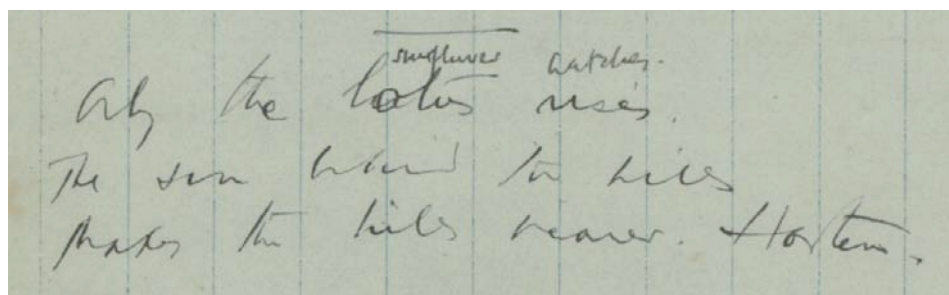 sunflower watches.
Only the lotus rises.
The sun behind the hills
Makes the hills nearer.